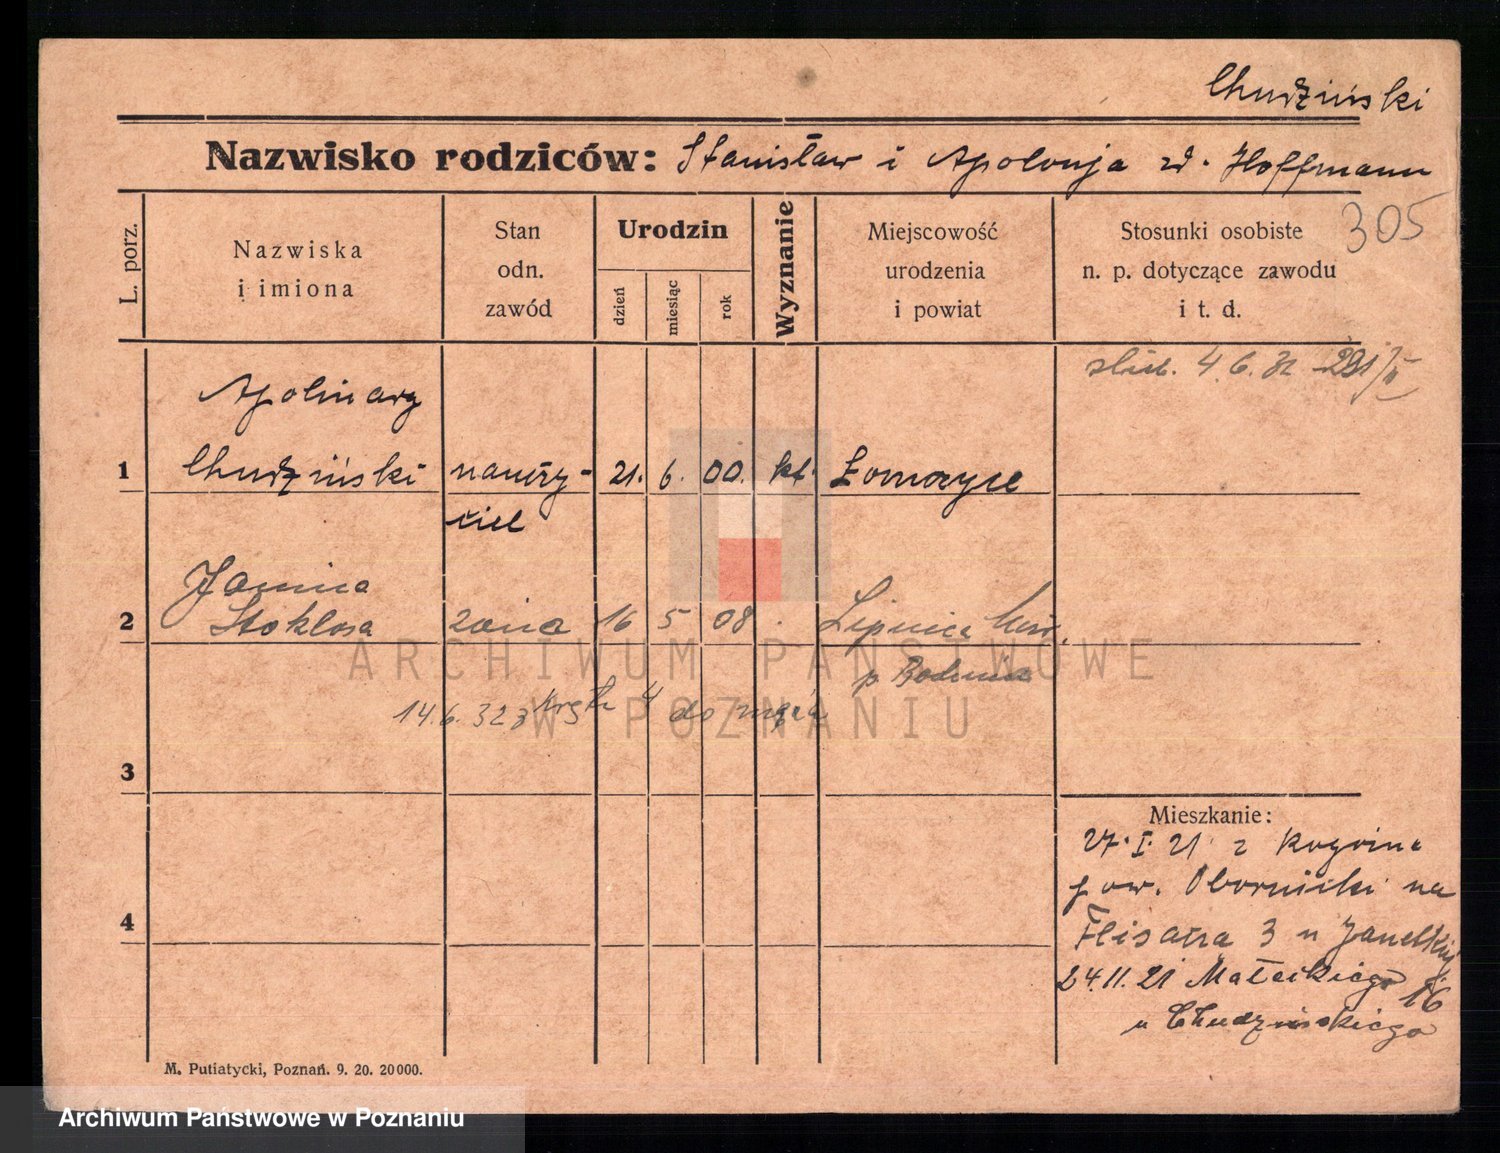 Chudziński
Nazwisko rodziców: Stanisław i Apolonja zd. Hoffmann
305
L. porz.
Nazwiska
i imiona
Stan
odn.
zawód
Urodzin
dzień
miesiąc
rok
Wyznanie
Miejscowość
urodzenia
i powiat
Stosunki osobiste
n. p. dotyczące zawodu
i t. d.
ślub. 4.6.32
Apolinary
1 Chudziński nauczy- 21. 6. 00. kt.
ciel
Janina
2 Stokłosa żona 16 5 08 Lipnica
p. Bochnia
14.6.32 z do męża
3
4
Mieszkanie:
27.I.21 z Rogoźna
pow. Obornicki na
Flisacza 3 u
24.11.21 Małeckiego 16
u Chudzińskiego
M. Putiatycki, Poznań. 9. 20. 20000.
ARCHIWUM PAŃSTWOWE
W POZNANIU
Archiwum Państwowe w Poznaniu